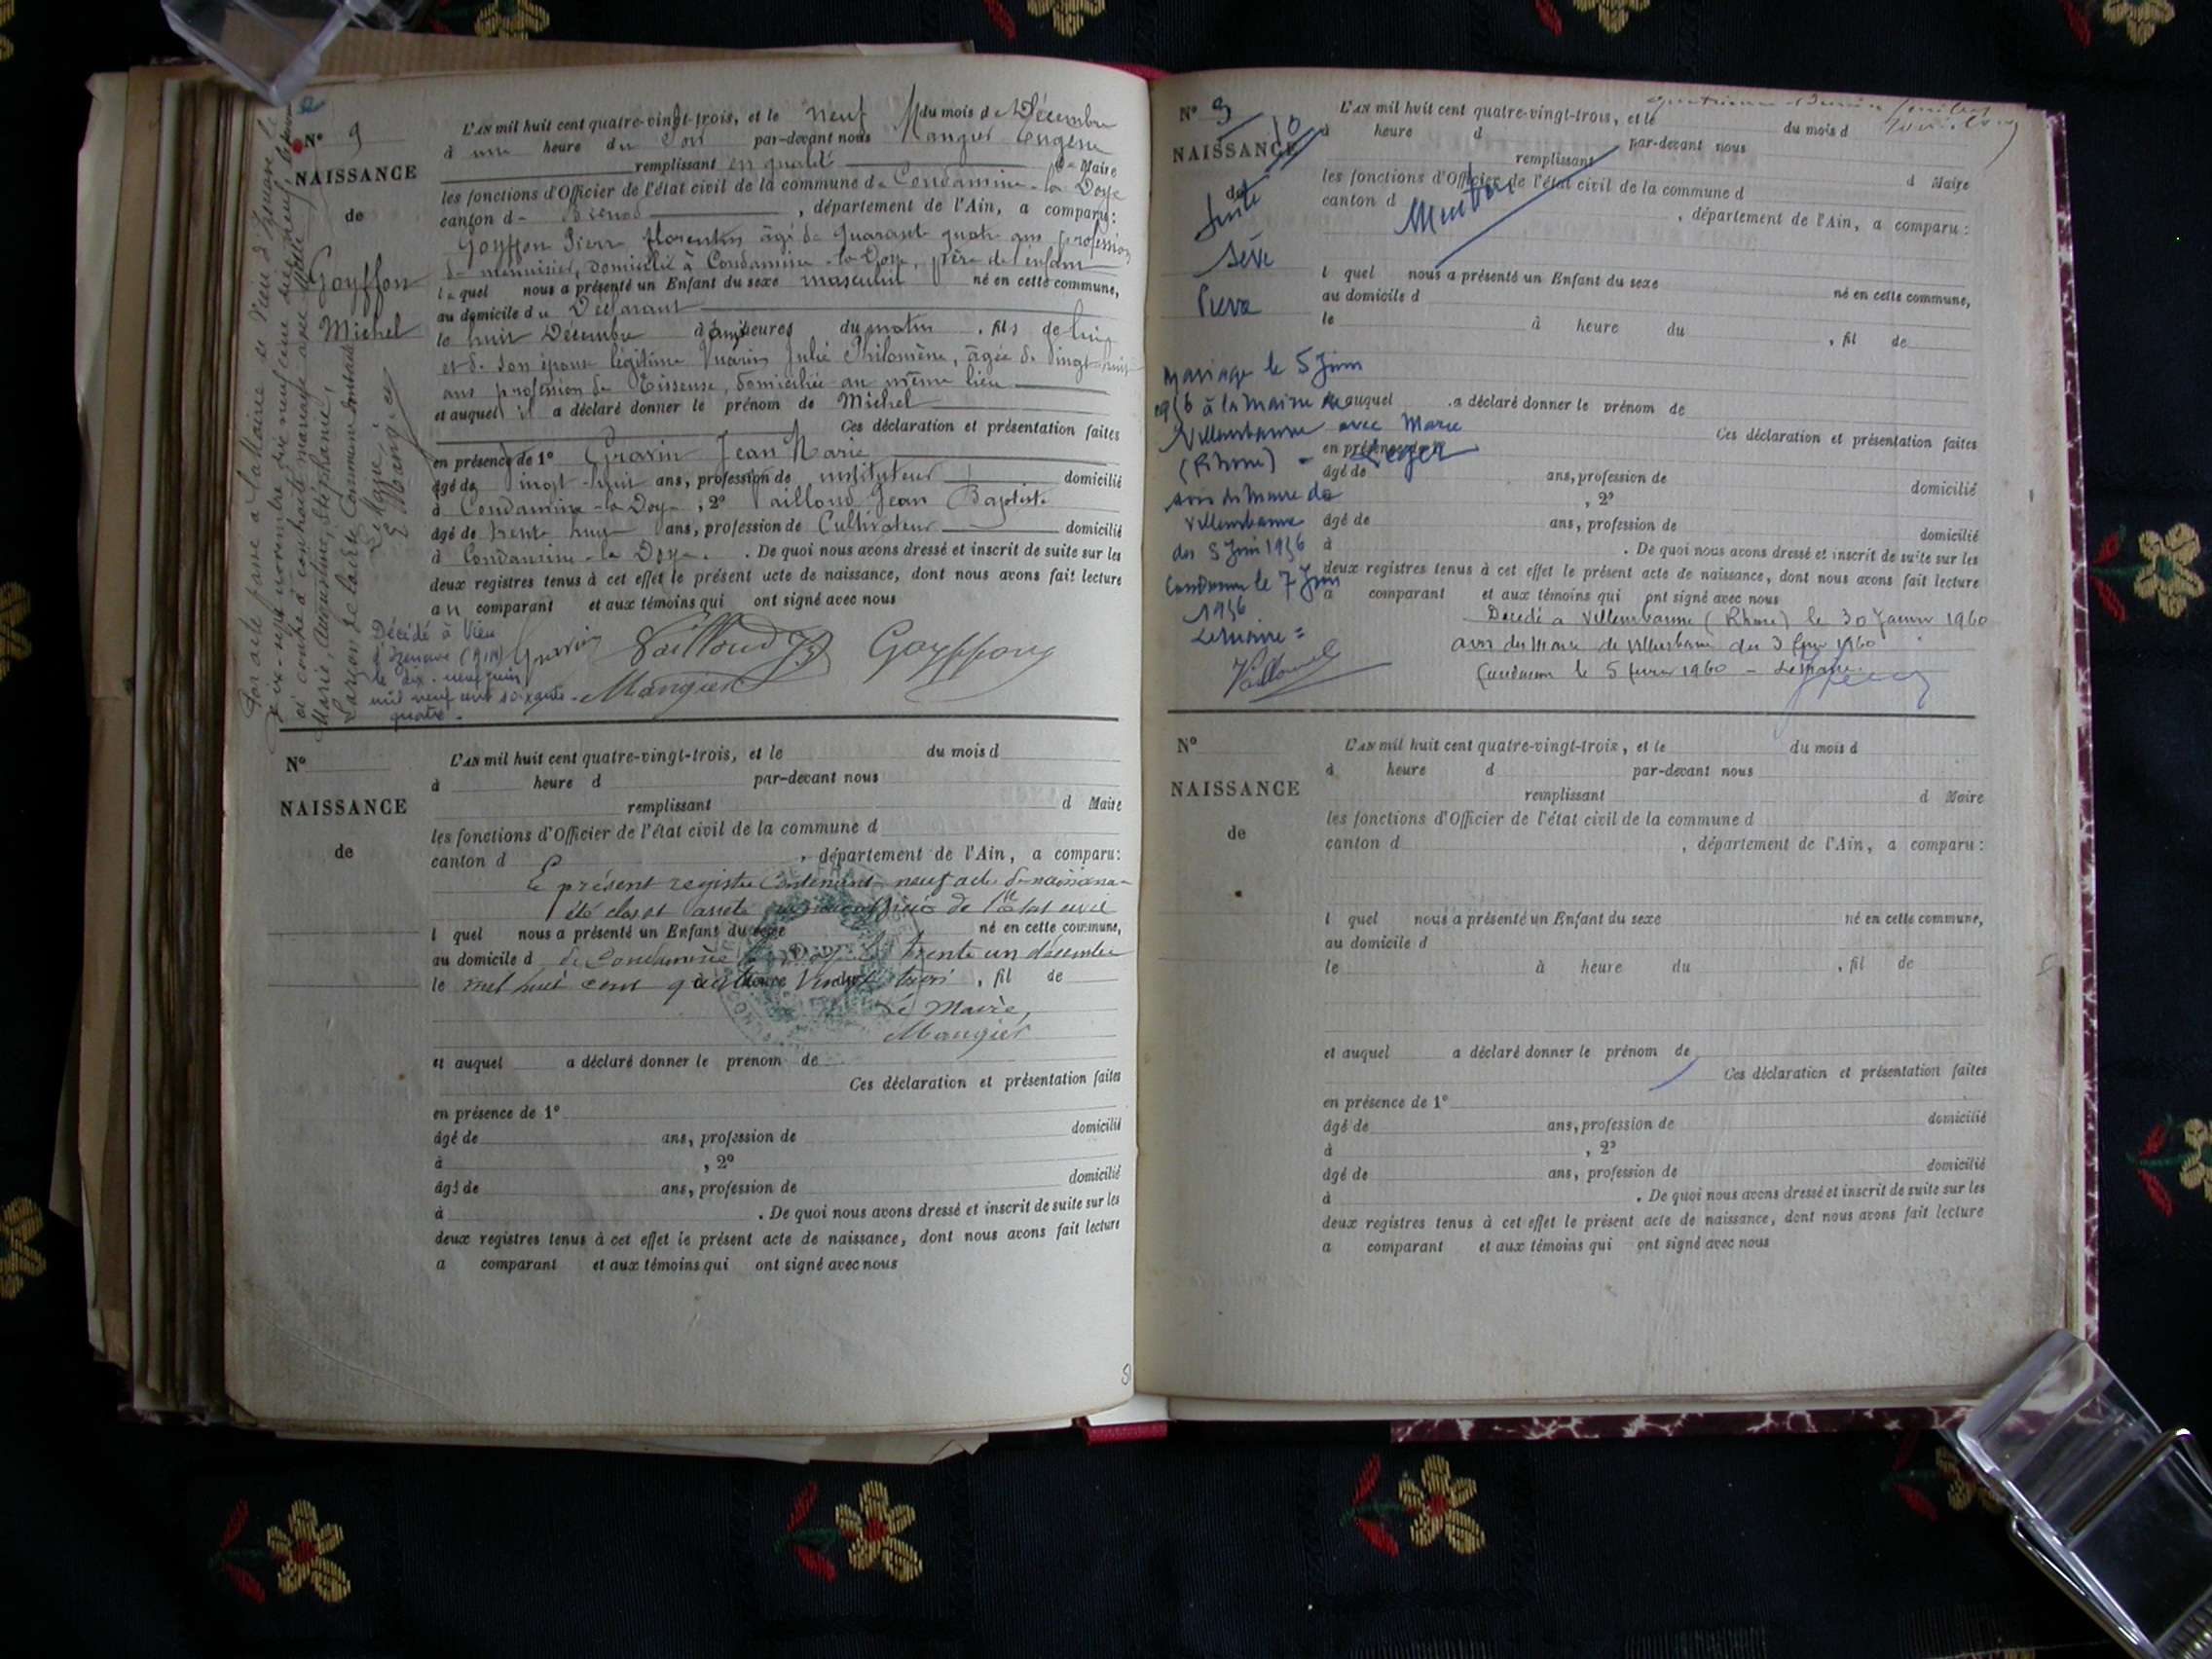 N° 9
NAISSANCE
de
Goyffon
Michel
L'AN mil huit cent quatre-vingt-trois, et le neuf du mois de Décembre
à une heure du Soir par-devant nous Mangier Eugène
remplissant en qualité de Maire
les fonctions d'Officier de l'état civil de la commune de Condamine-la Doye
canton de Brénod, département de l'Ain, a comparu:
Goyffon Pierre florentin âgé de quarante quatre ans profession
de menuisier, domicilié à Condamine-la-Doye, père de l'enfant
lequel nous a présenté un Enfant du sexe masculin né en cette commune,
au domicile du Déclarant
le huit Décembre à heures du matin, fils de lui
et de son épouse légitime Julie Philomène, âgée de vingt-huit
ans profession de Tisseuse, domiciliée au même lieu
et auquel il a déclaré donner le prénom de Michel
Ces déclaration et présentation faites
en présence de 1° Gravin Jean Marie
âgé de vingt-huit ans, profession de instituteur domicilié
à Condamine-la-Doye, 2° Vailloud Jean Baptiste
âgé de trente ans, profession de Cultivateur domicilié
à Condamine-la Doye. De quoi nous avons dressé et inscrit de suite sur les
deux registres tenus à cet effet le présent acte de naissance, dont nous avons fait lecture
au comparant et aux témoins qui ont signé avec nous
Gravin Vailloud Goyffon
Mangier
Par acte passé à la Mairie de Vieu d'Izenave le
dix-sept novembre dix neuf cent dix neuf,
ci contre a contracté mariage avec
Marie, Augustine, Stéphanie,
Le Maire
E. Mangier
Décédé à Vieu
d'Izenave (Ain)
le dix-neuf juin
mil neuf cent soixante-
quatre.
N°
NAISSANCE
de
L'AN mil huit cent quatre-vingt-trois, et le du mois d
à heure d par-devant nous
remplissant d Maire
les fonctions d'Officier de l'état civil de la commune d
canton d , département de l'Ain, a comparu:
Le présent registre contenant neuf actes de naissance a
été clos et arrêté par nous officier de l'état civil
l quel nous a présenté un Enfant du sexe né en cette commune,
au domicile d de Condamine la Doye le trente un décembre
le mil huit cent quatre vingt trois , fil de
Le Maire,
Mangier
et auquel a déclaré donner le prénom de
Ces déclaration et présentation faites
en présence de 1°
âgé de ans, profession de domicilié
à , 2°
âgé de ans, profession de domicilié
à . De quoi nous avons dressé et inscrit de suite sur les
deux registres tenus à cet effet le présent acte de naissance, dont nous avons fait lecture
a comparant et aux témoins qui ont signé avec nous
N° 9 10
NAISSANCE
de
Suite
Sève
Pierre
L'AN mil huit cent quatre-vingt-trois, et le du mois d
à heure d par-devant nous
remplissant d Maire
les fonctions d'Officier de l'état civil de la commune d
canton d , département de l'Ain, a comparu:
l quel nous a présenté un Enfant du sexe né en cette commune,
au domicile d
le à heure du , fil de
et auquel a déclaré donner le prénom de
Ces déclaration et présentation faites
en présence de 1°
âgé de ans, profession de domicilié
, 2°
âgé de ans, profession de domicilié
à . De quoi nous avons dressé et inscrit de suite sur les
deux registres tenus à cet effet le présent acte de naissance, dont nous avons fait lecture
a comparant et aux témoins qui ont signé avec nous
Mariage le 5 Juin
1956 à la mairie de
Villeurbanne avec Marie
(Rhône) - Leger
avis du Maire de
Villeurbanne
du 5 Juin 1956
Condamine le 7 Juin
1956
Le Maire =
Vailloud
Décédé à Villeurbanne (Rhone) le 30 Janvier 1960
avis du Maire de Villeurbanne du 3 fevr 1960
Condamine le 5 fevrier 1960 - Le Maire
N°
NAISSANCE
de
L'AN mil huit cent quatre-vingt-trois, et le du mois d
à heure d par-devant nous
remplissant d Maire
les fonctions d'Officier de l'état civil de la commune d
canton d , département de l'Ain, a comparu:
l quel nous a présenté un Enfant du sexe né en cette commune,
au domicile d
le à heure du , fil de
et auquel a déclaré donner le prénom de
Ces déclaration et présentation faites
en présence de 1°
âgé de ans, profession de domicilié
à , 2°
âgé de ans, profession de domicilié
à . De quoi nous avons dressé et inscrit de suite sur les
deux registres tenus à cet effet le présent acte de naissance, dont nous avons fait lecture
a comparant et aux témoins qui ont signé avec nous